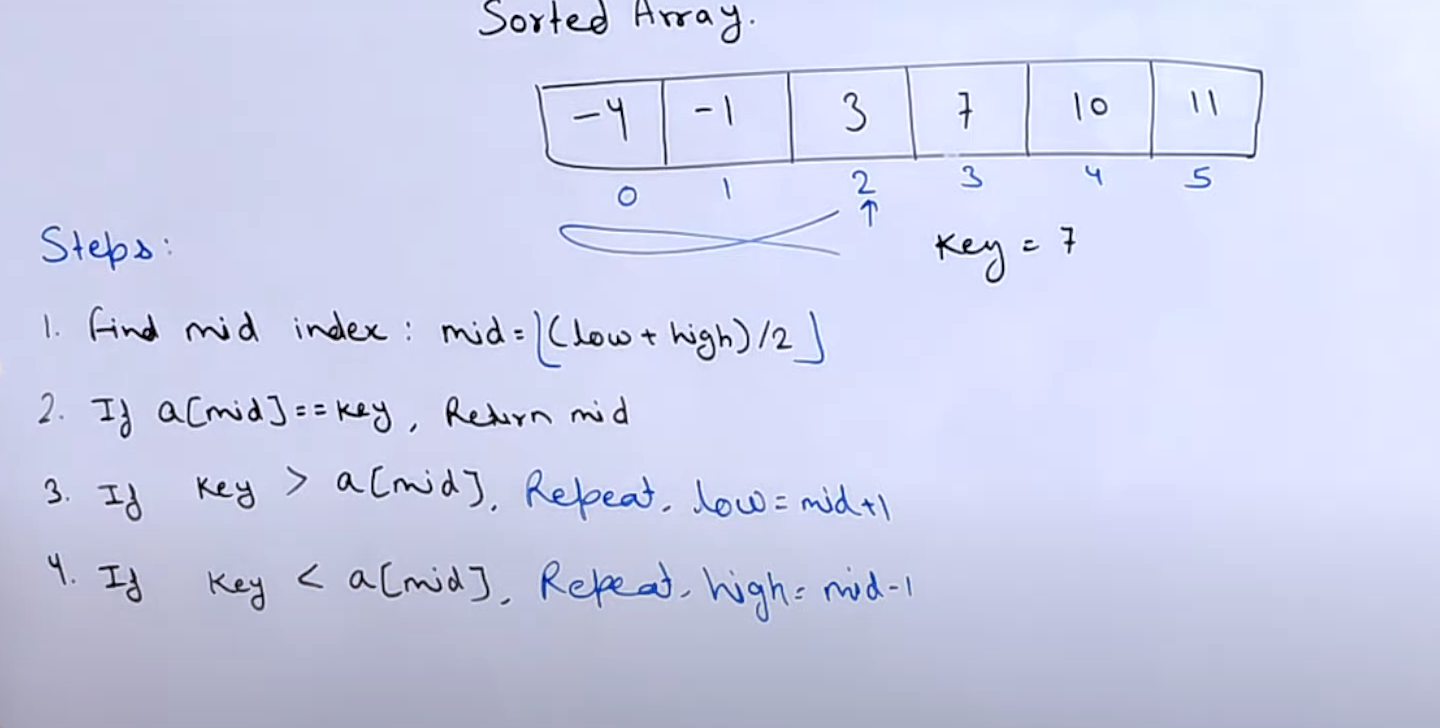 Sorted Array.
-4 -1 3 7 10 11
0 1 2 3 4 5
↑
Steps:
Key = 7
1. Find mid index : mid = ⌊(low + high)/2⌋
2. If a[mid] == key, Return mid
3. If Key > a[mid]. Repeat. low = mid+1
4. If Key < a[mid]. Repeat. high = mid-1